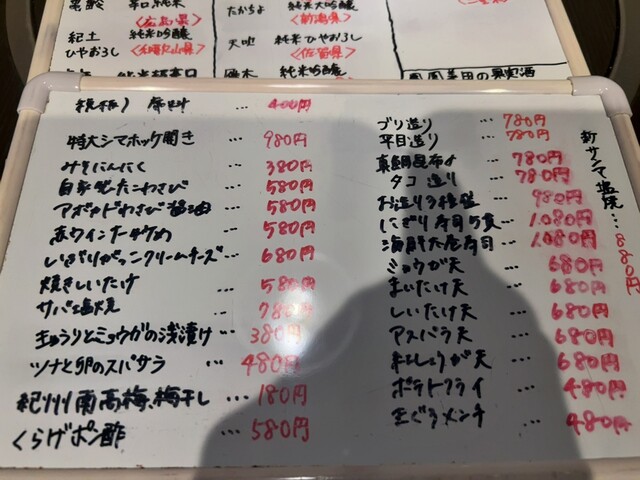 辛口純米
<広島県>
紀土
ひやおろし
純米吟醸
<和歌山県>
たかちよ
純米大吟醸
<新潟県>
天吹
純米ひやおろし
<佐賀県>
純米吟醸
特大シマホッケ開き … 980円
みそにんにく … 380円
自家製たこわさび … 580円
アボカドわさび醤油 … 580円
赤ワイン … 580円
いぶりがっこクリームチーズ … 680円
焼きしいたけ … 580円
サバ塩焼 … 780円
きゅうりとミョウガの浅漬け … 380円
ツナと卵のスパサラ … 480円
紀州南高梅、梅干し … 180円
くらげポン酢 … 580円
ブリ造り … 780円
平目造り … 780円
真鯛昆布〆 … 780円
タコ造り … 780円
お造り3種盛 … 980円
にぎり寿司5貫 … 1,080円
海鮮太巻寿司 … 1,080円
ミョウガ天 … 680円
まいたけ天 … 680円
しいたけ天 … 680円
アスパラ天 … 680円
紅しょうが天 … 680円
ポテトフライ … 480円
まぐろメンチ … 480円
新サンマ塩焼…880円